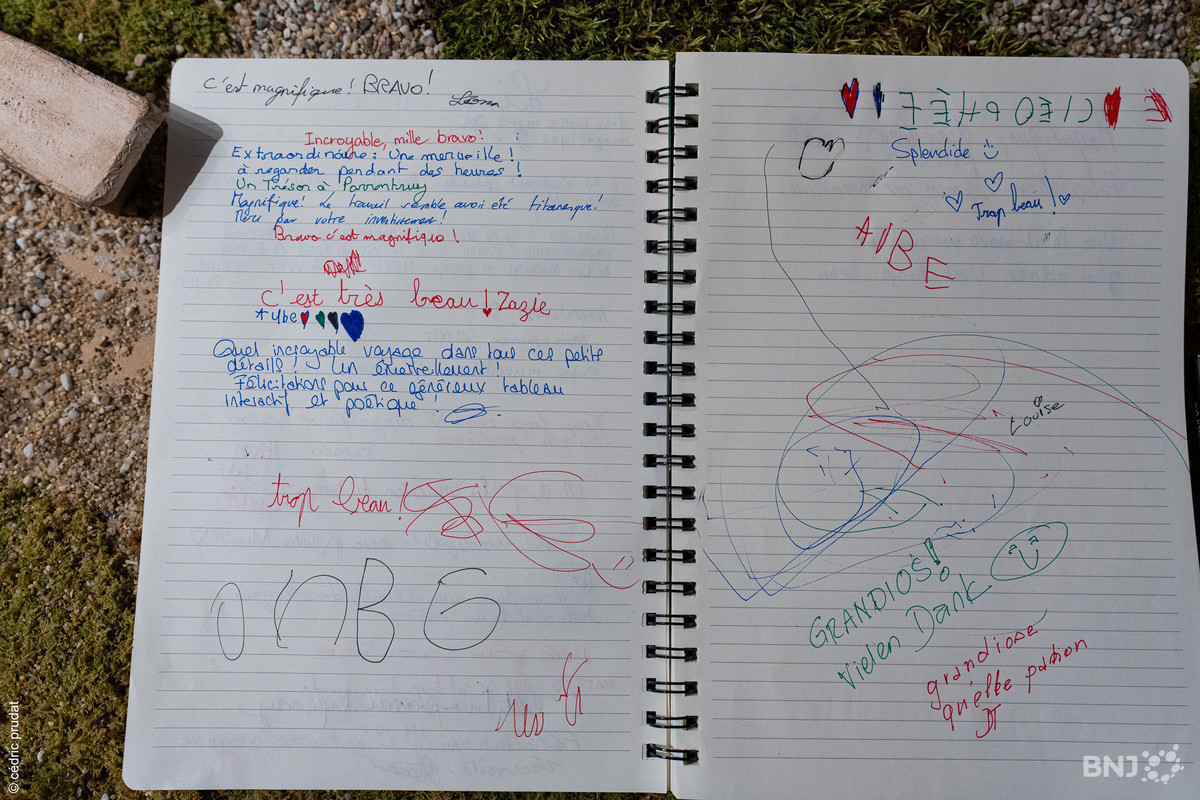 C'est magnifique ! BRAVO !
Léona
Incroyable, mille bravo !
Extraordinaire : Une merveille !
à regarder pendant des heures !
Un Trésor à Porrentruy
Magnifique ! Le travail semble avoir été titanesque !
Merci par votre investissement !
Bravo c'est magnifique !
c'est très beau ! Zazie
Aybe
Quel incroyable voyage dans tous ces petits
détails ! Un émerveillement !
Félicitations pour ce généreux tableau
interactif et poétique !
trop beau !
CLÉOPHÉE
Splendide
Trop beau !
AYBE
Louise
GRANDIOS !
Vielen Dank
grandiose
quelle passion
© cédric prudat
BNJ